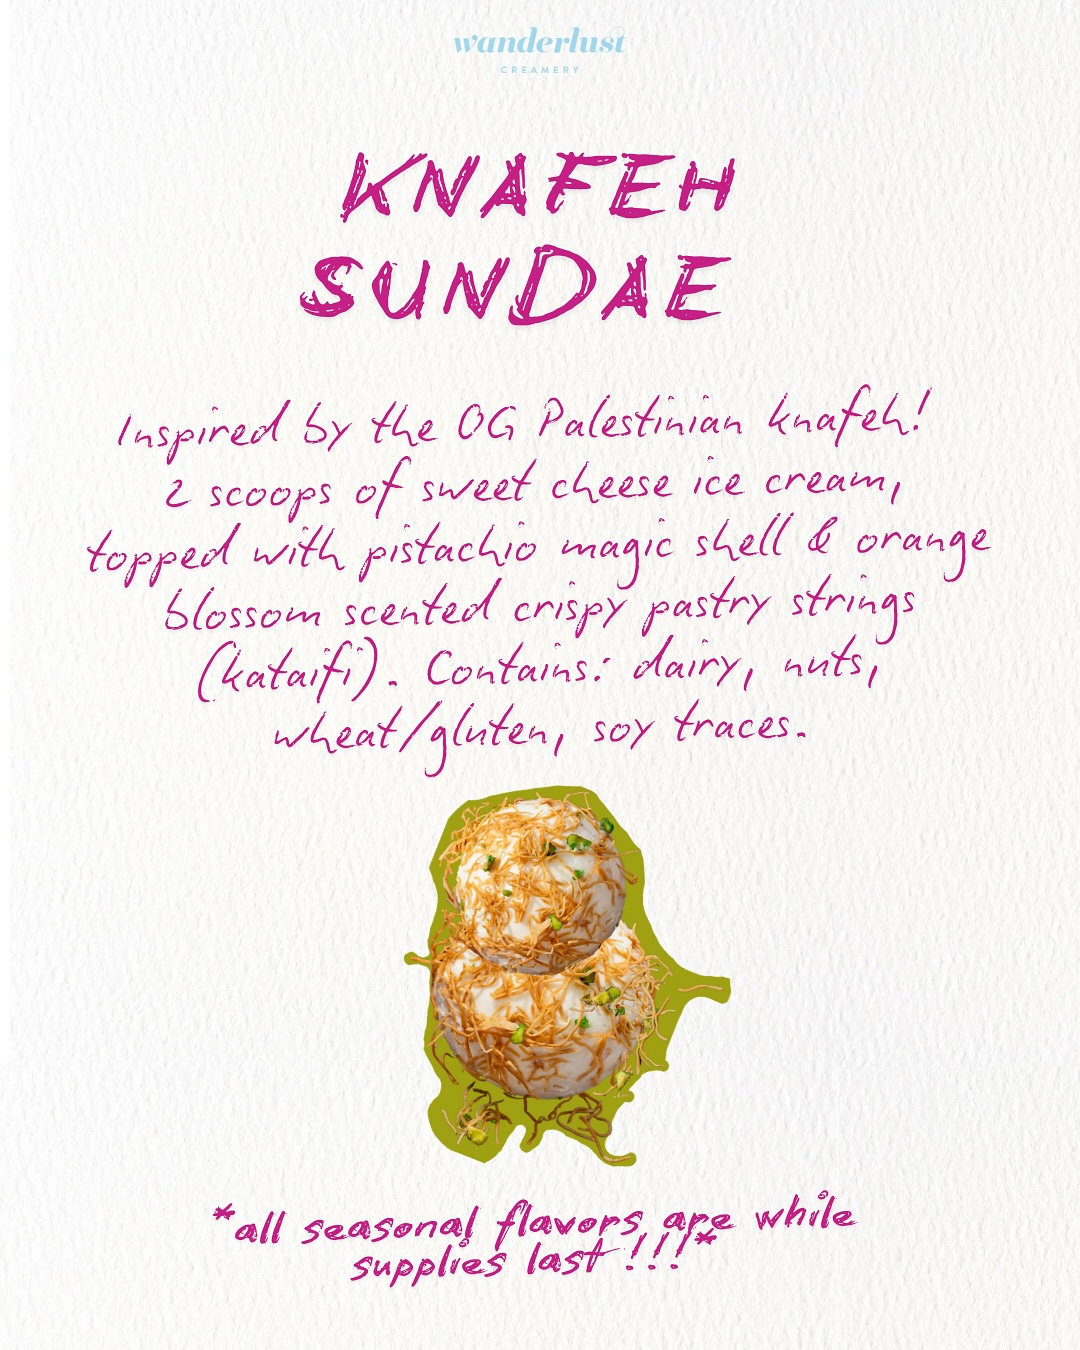 wanderlust
CREAMERY
KNAFEH
SUNDAE
Inspired by the OG Palestinian knafeh!
2 scoops of sweet cheese ice cream,
topped with pistachio magic shell & orange
blossom scented crispy pastry strings
(kataifi). Contains: dairy, nuts,
wheat/gluten, soy traces.
*all seasonal flavors are while
supplies last!!!*